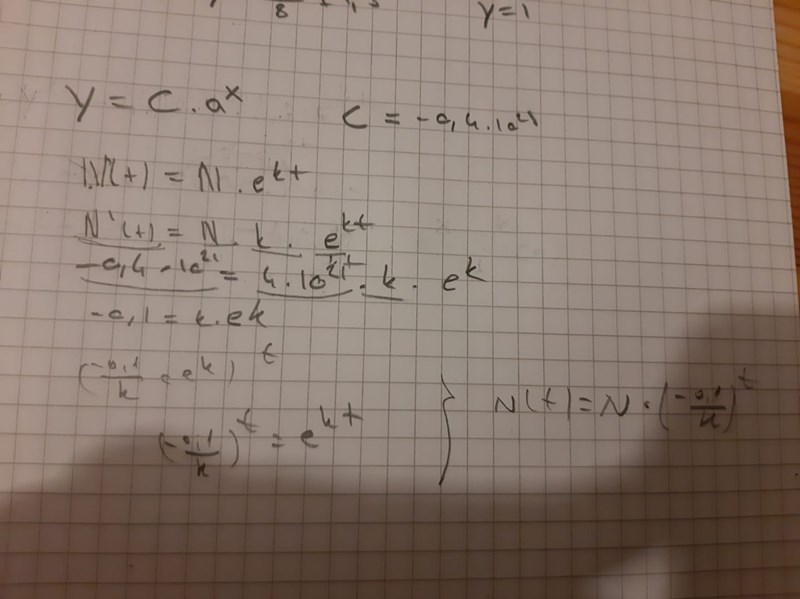 8
y=1
y = C . a^x
C = -0,4 . 10^21
N(t) = N . e^kt
N'(t) = N . k . e^kt
-0,4 . 10^21 = 4 . 10^21 . k . e^k
-0,1 = k . ek
(-0,1/k = e^k)^t
(-0,1/k)^t = e^kt
} N(t) = N . (-0,1/k)^t